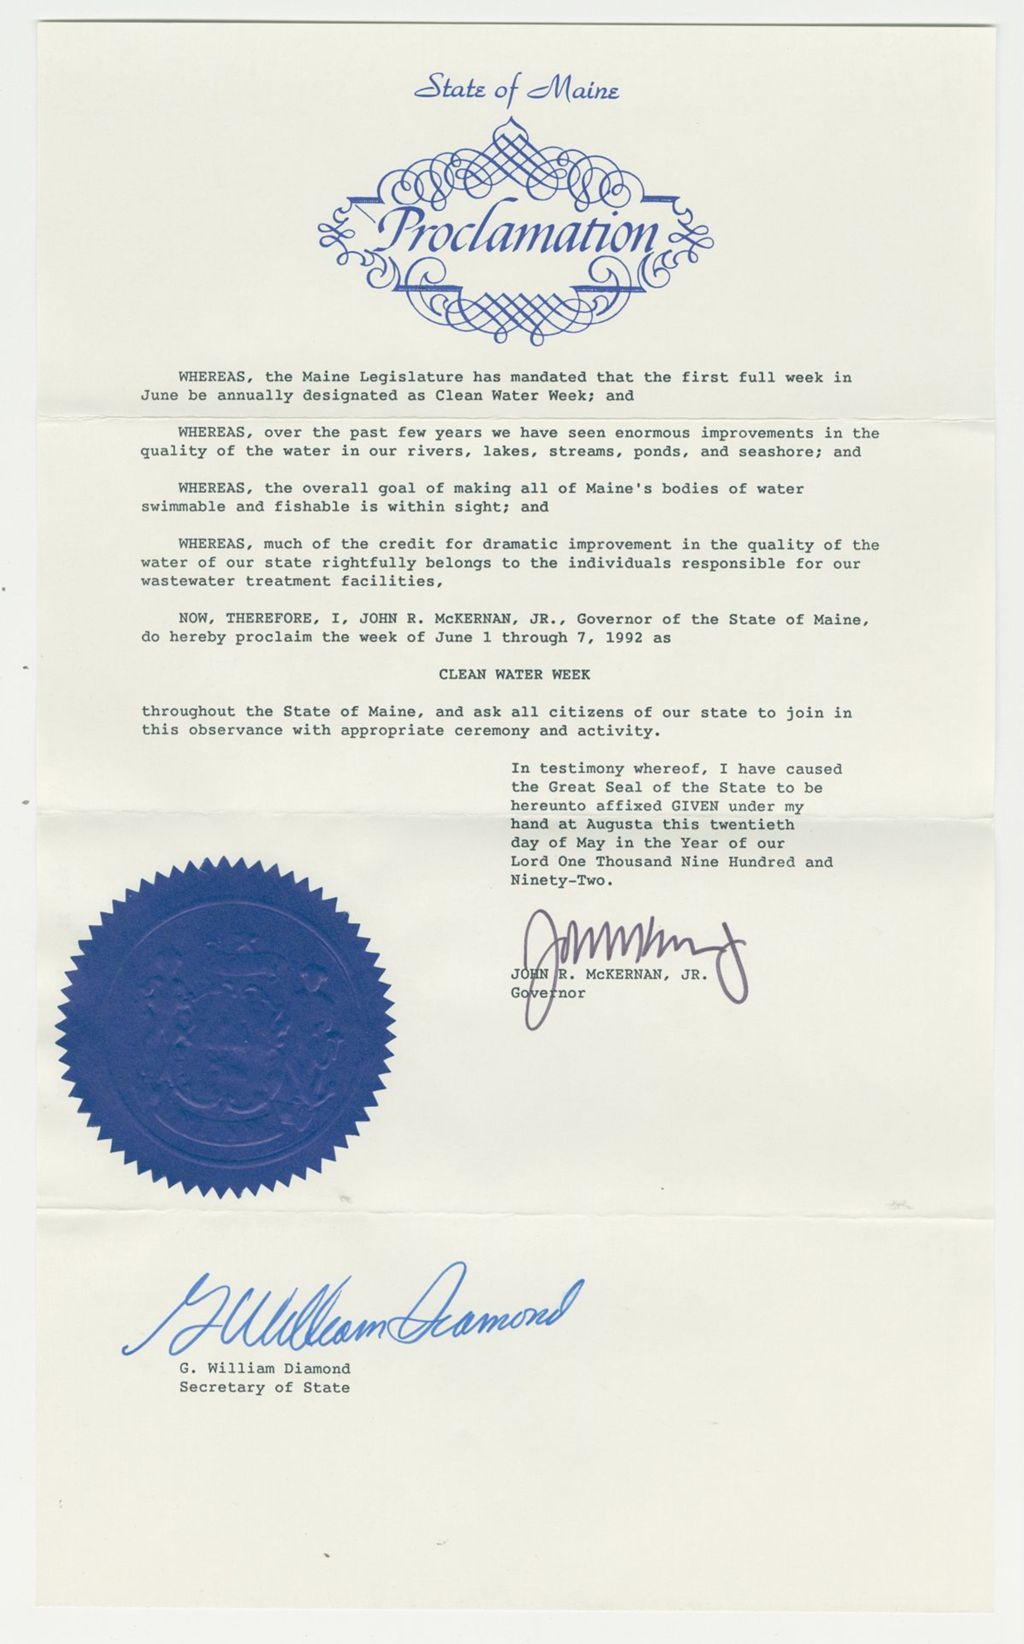 State of Maine
Proclamation
WHEREAS, the Maine Legislature has mandated that the first full week in
June be annually designated as Clean Water Week; and
WHEREAS, over the past few years we have seen enormous improvements in the
quality of the water in our rivers, lakes, streams, ponds, and seashore; and
WHEREAS, the overall goal of making all of Maine's bodies of water
swimmable and fishable is within sight; and
WHEREAS, much of the credit for dramatic improvement in the quality of the
water of our state rightfully belongs to the individuals responsible for our
wastewater treatment facilities,
NOW, THEREFORE, I, JOHN R. McKERNAN, JR., Governor of the State of Maine,
do hereby proclaim the week of June 1 through 7, 1992 as
CLEAN WATER WEEK
throughout the State of Maine, and ask all citizens of our state to join in
this observance with appropriate ceremony and activity.
In testimony whereof, I have caused
the Great Seal of the State to be
hereunto affixed GIVEN under my
hand at Augusta this twentieth
day of May in the Year of our
Lord One Thousand Nine Hundred and
Ninety-Two.
JOHN R. McKERNAN, JR.
Governor
G William Diamond
G. William Diamond
Secretary of State